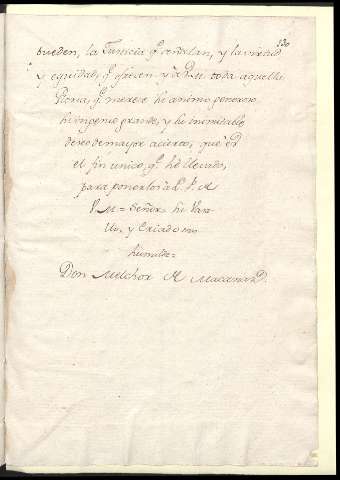 130
pueden, la Justicia q̃ señalan, y la verdad
y equidad, q̃ ofrecen y à V. M. toda aquella
Gloria, q̃ merece su animo generoso
su ingenio grande, y su inimitable
deseo de mayor acierto, que es
el fin unico, q̃ hè llevado,
para ponerlos à L. P. de
V. M = Señor su Vasa-
llo, y Criado mas
humilde =
Don Melchor de Macanaz